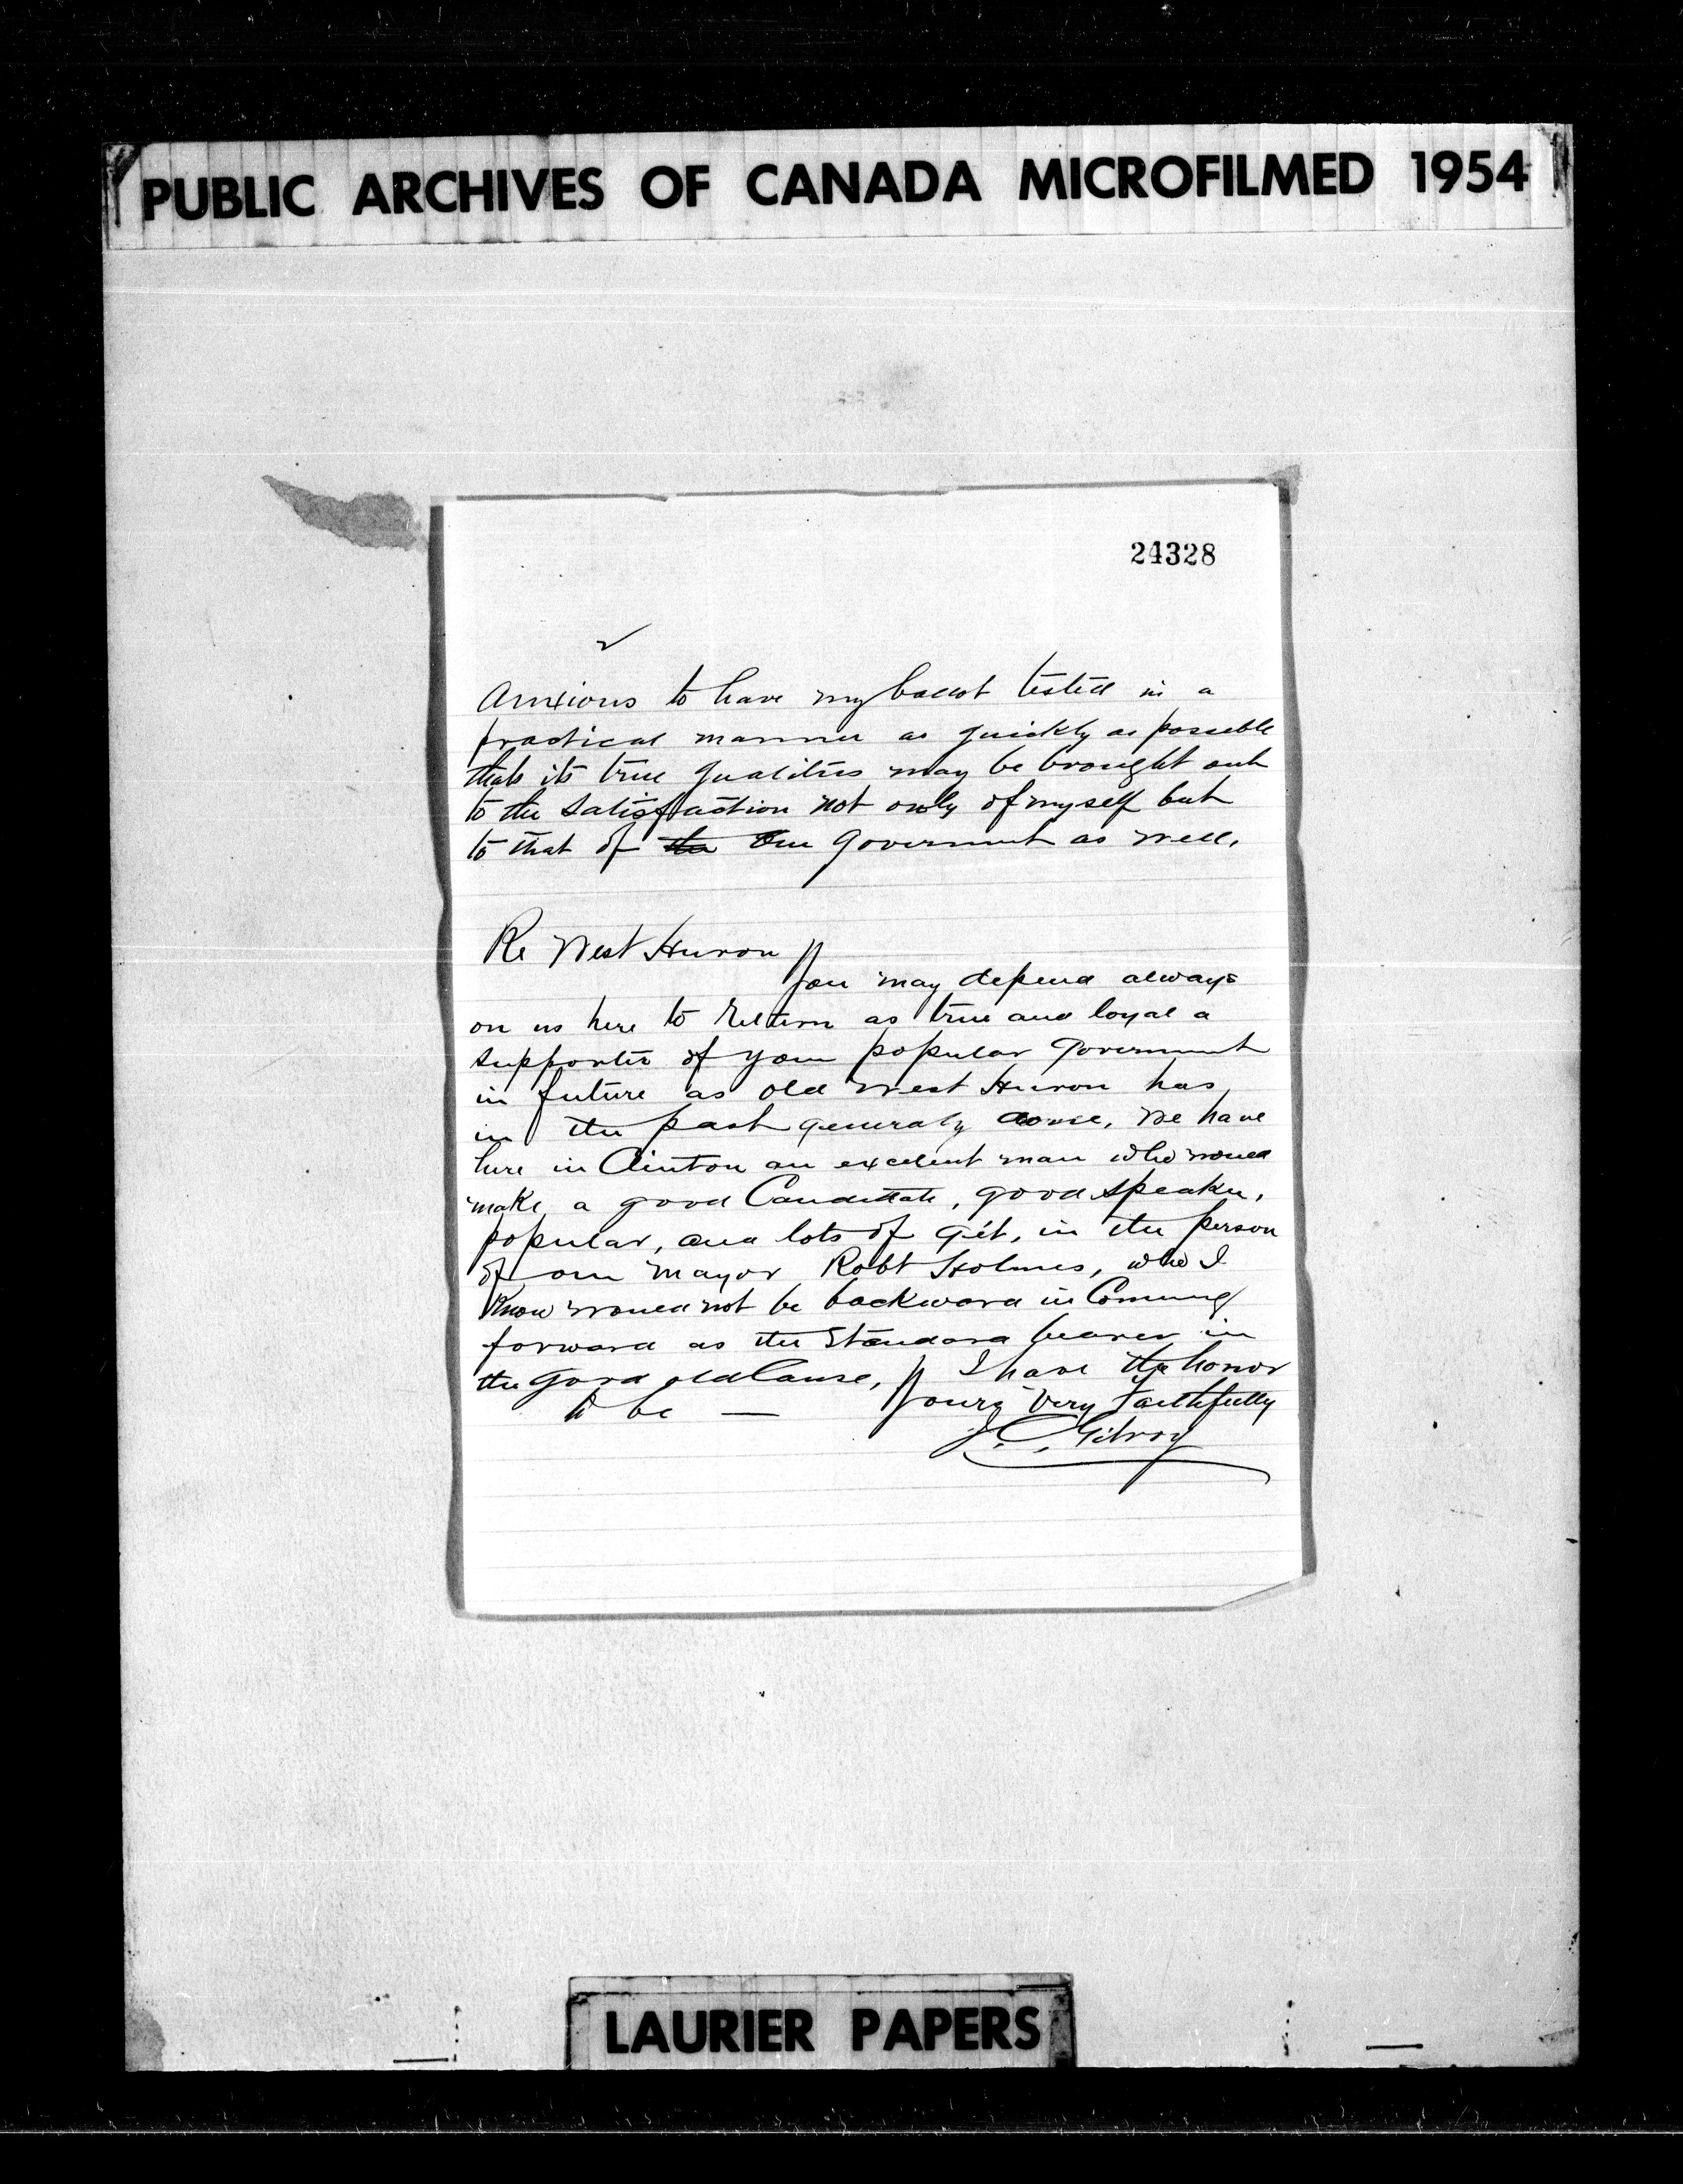 PUBLIC ARCHIVES OF CANADA MICROFILMED 1954
24328
Anxious to have my ballot tested in a
practical manner as quickly as possible
that its true qualities may be brought out
to the satisfaction not only of myself but
to that of the Our Government as well,
Re West Huron
You may depend always
on us here to return as true and loyal a
supporter of your popular Government
in future as old West Huron has
in the past generaly done, We have
here in Clinton an excelent man who would
make a good Candidate, good speaker,
popular, and lots of git, in the person
of our Mayor Robt Holmes, who I
Know would not be backward in Comeing
forward as the Standard bearer in
the good old Cause, I have the honor
to be — Yours Very Faithfully
J. C. Gilroy
LAURIER PAPERS